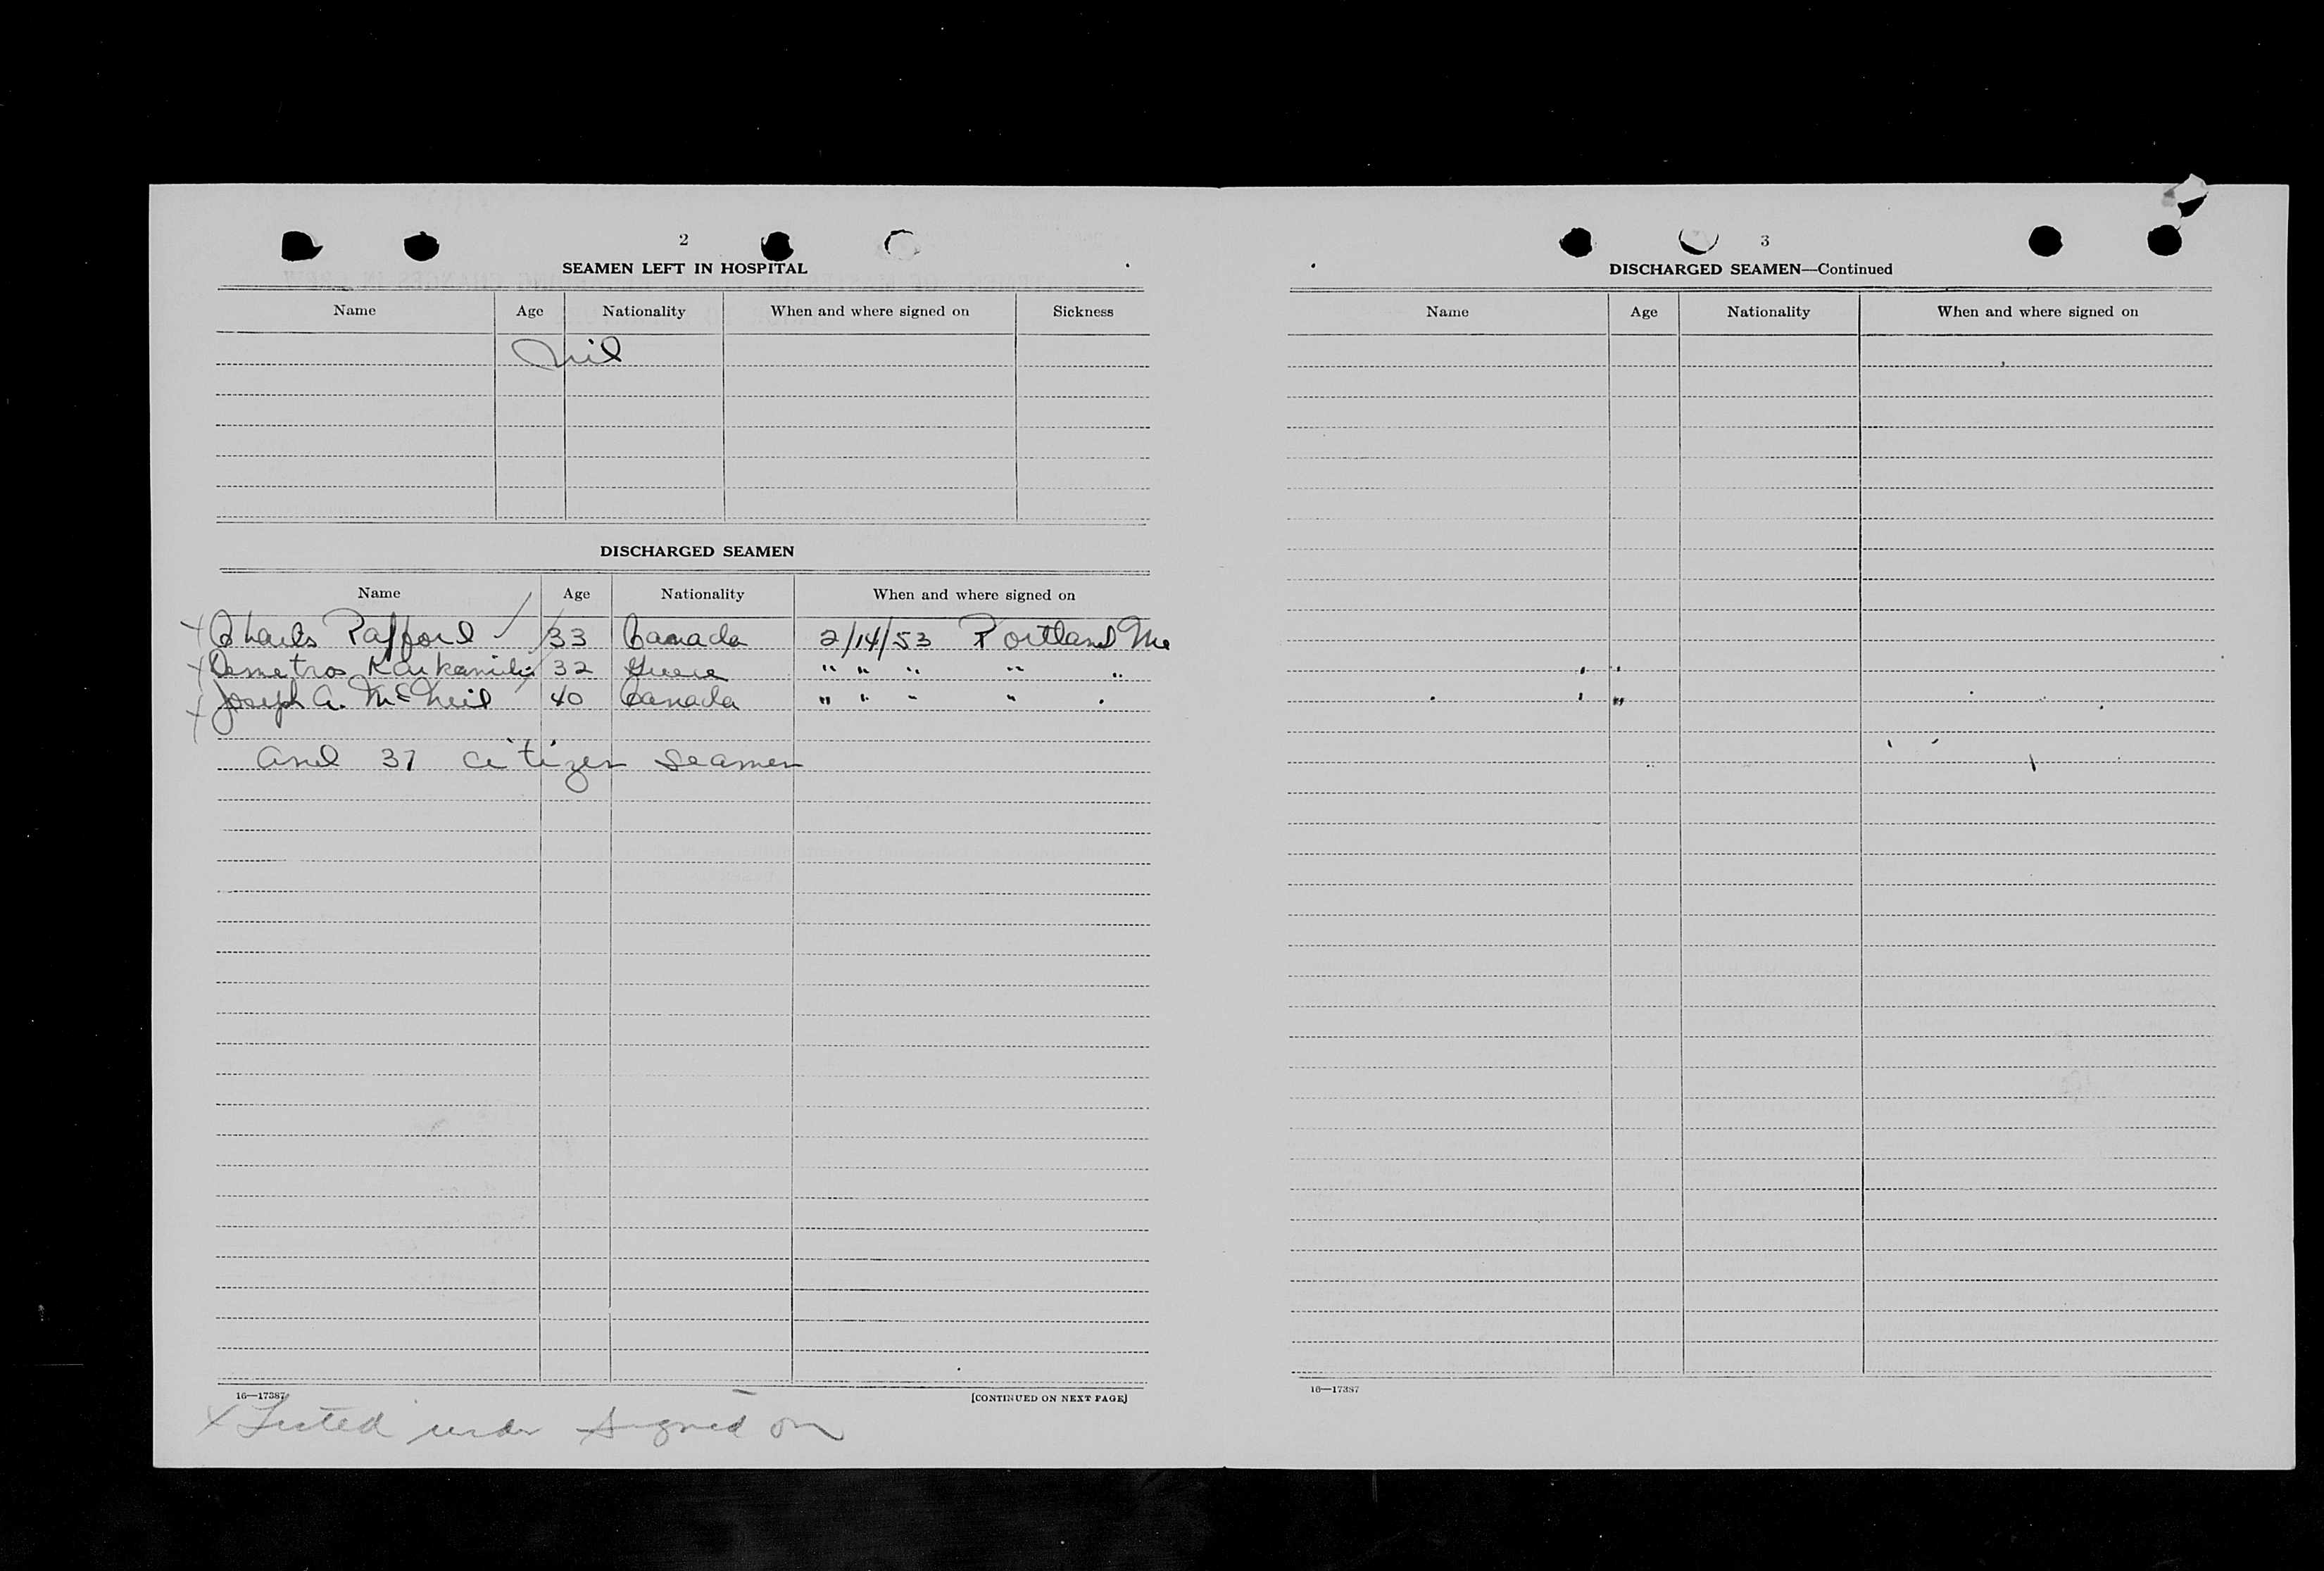 2
SEAMEN LEFT IN HOSPITAL
Name Age Nationality When and where signed on Sickness
nil
DISCHARGED SEAMEN
Name Age Nationality When and where signed on
x Charles Pafford 33 Canada 2/14/53 Portland Me
x Demetros 32 Greece " " " " "
x Joseph A. McNeil 40 Canada " " " " "
and 37 citizen seamen
16—17387
[CONTINUED ON NEXT PAGE]
x Listed under signed on
3
DISCHARGED SEAMEN—Continued
Name Age Nationality When and where signed on
16—17387